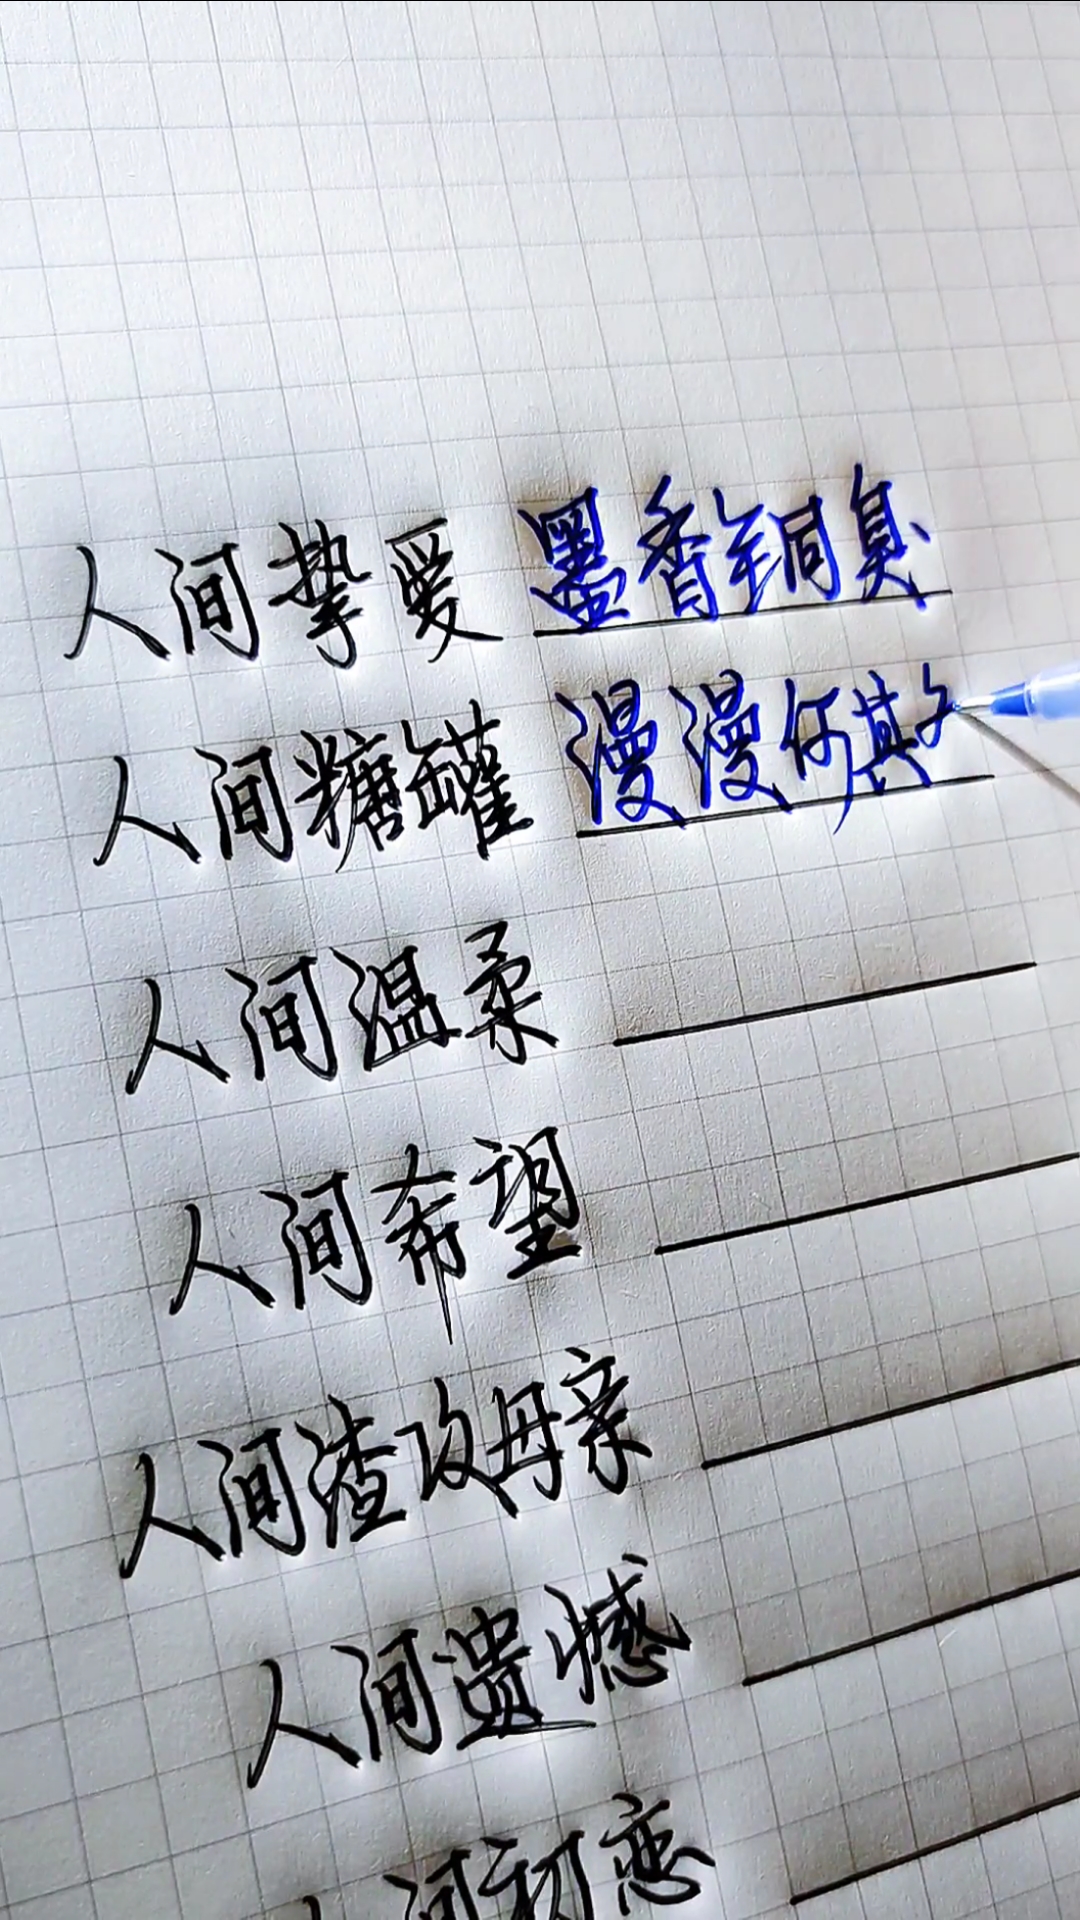 人间挚爱 墨香铜臭
人间糖罐 漫漫何其
人间温柔
人间希望
人间渣攻母亲
人间遗憾
人间初恋